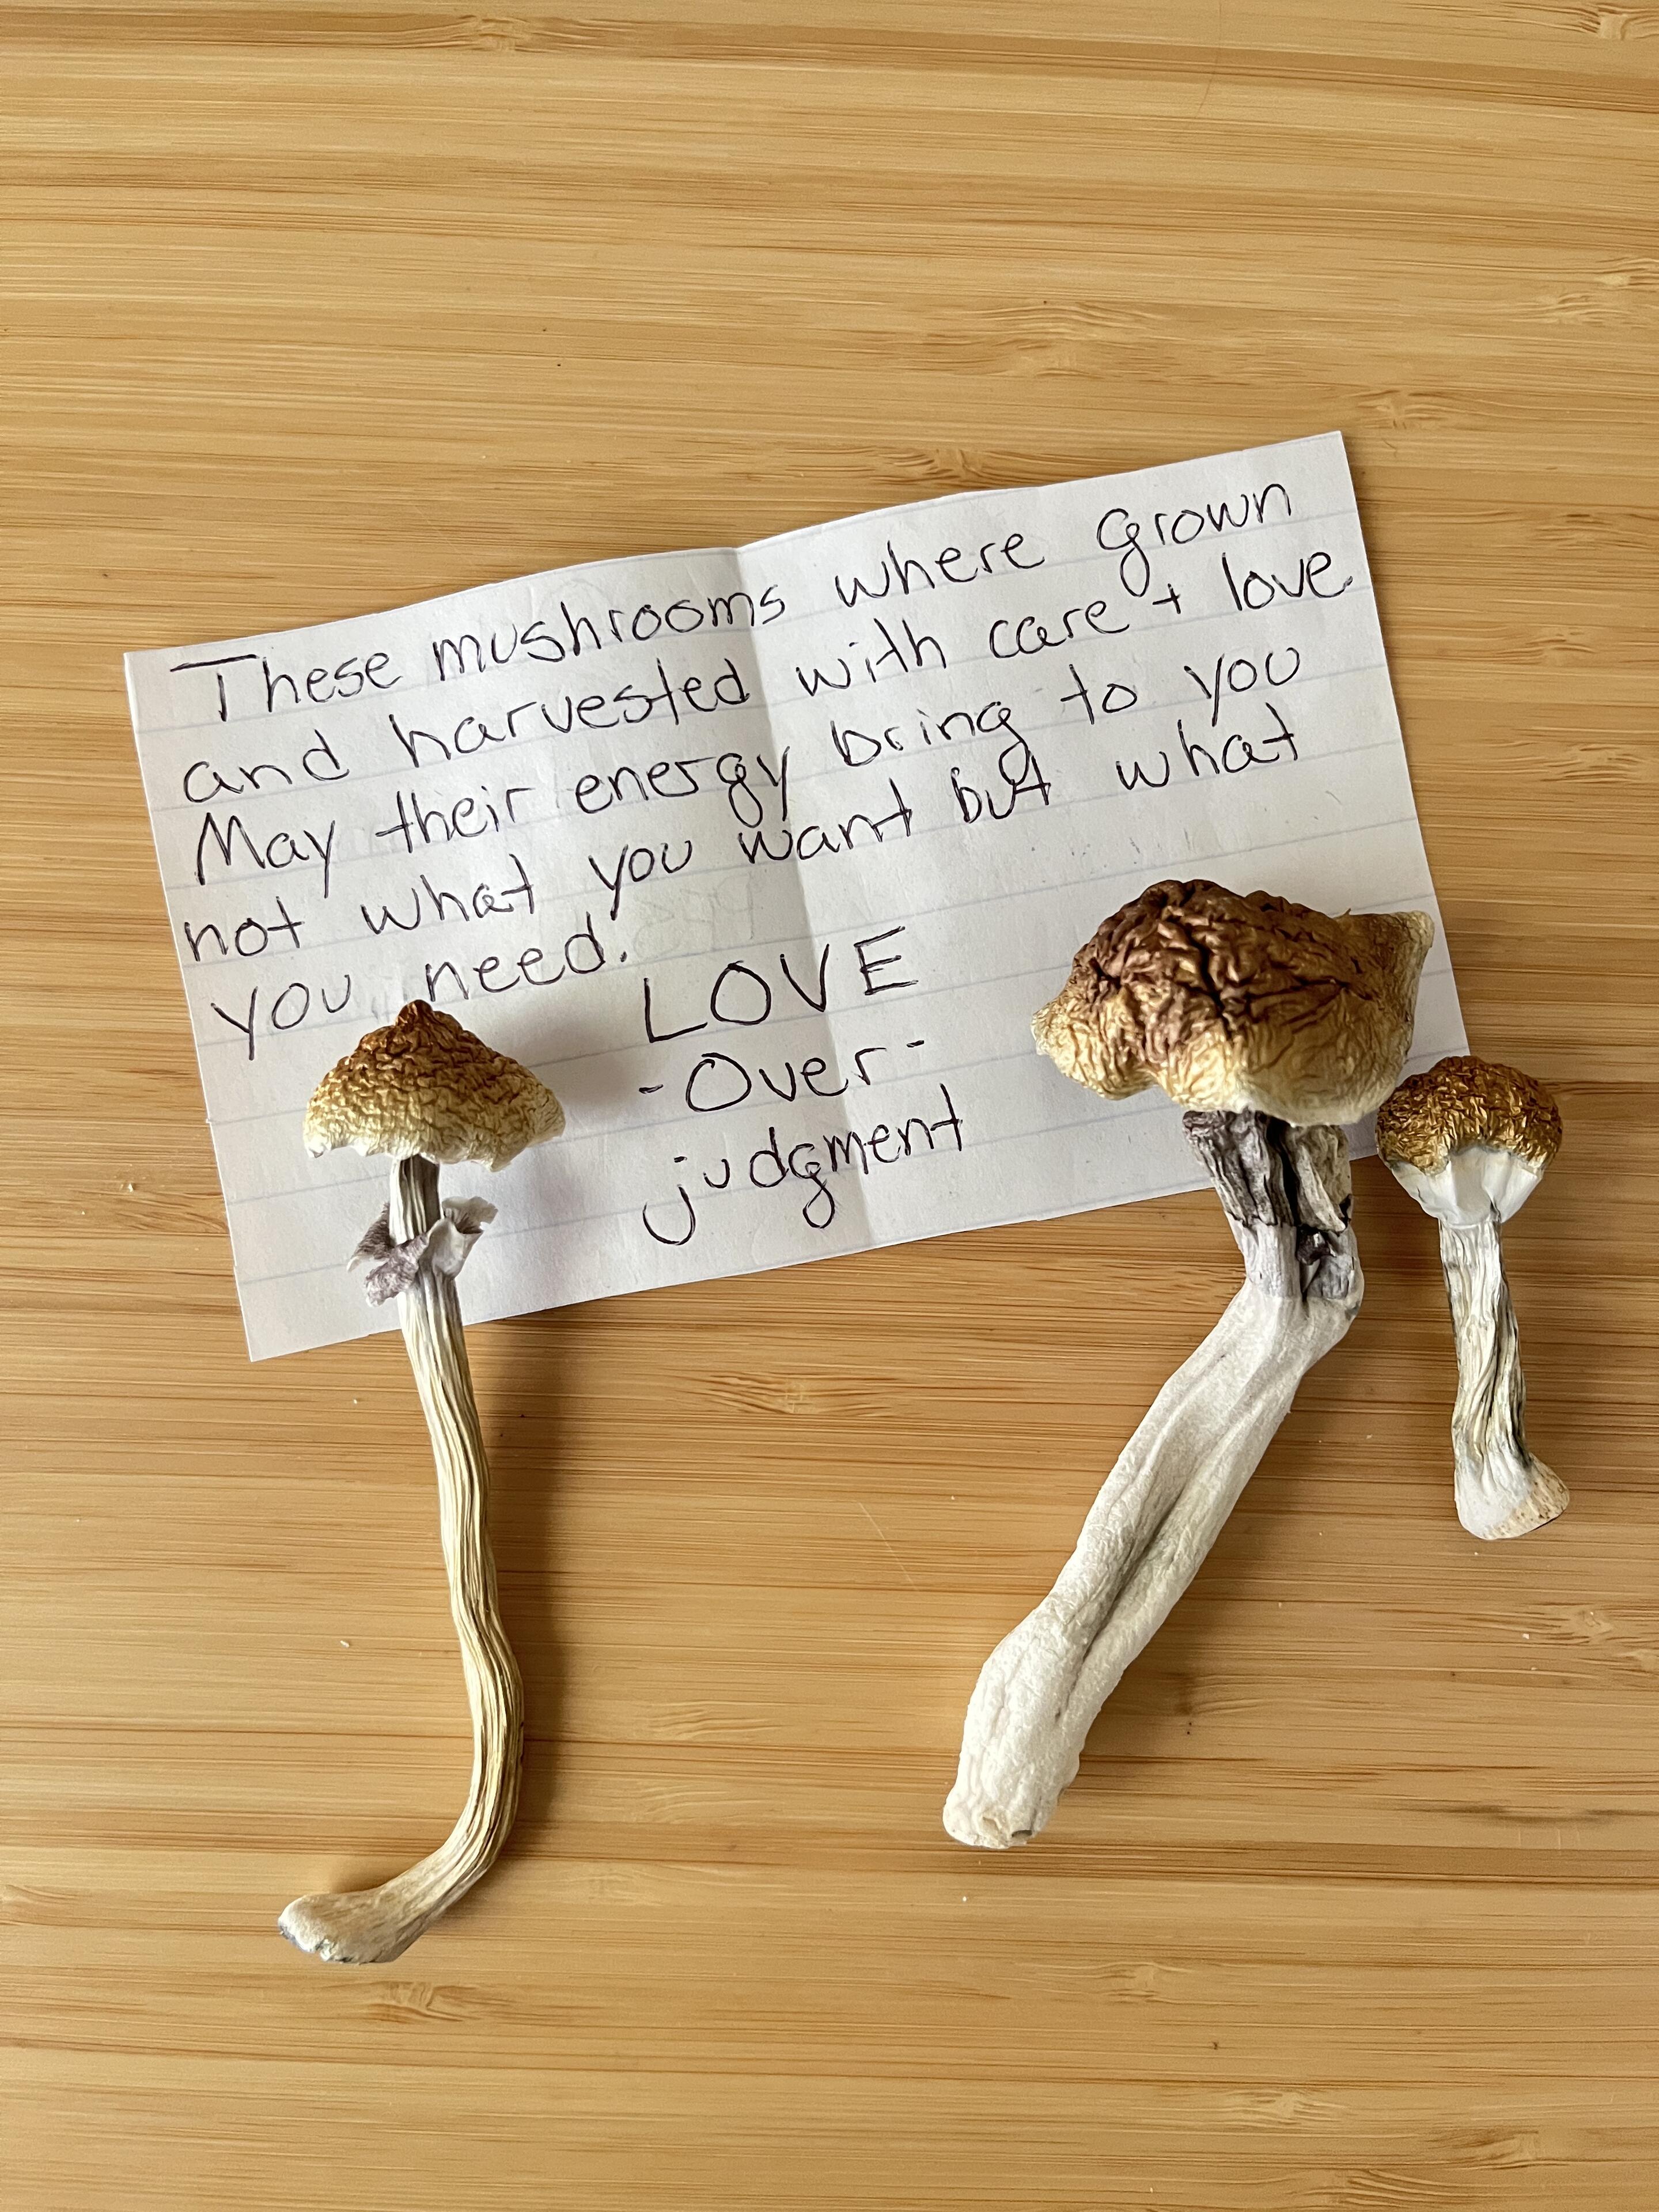 These mushrooms where grown
and harvested with care + love
May their energy bring to you
not what you want but what
you need.
LOVE
-Over-
judgment